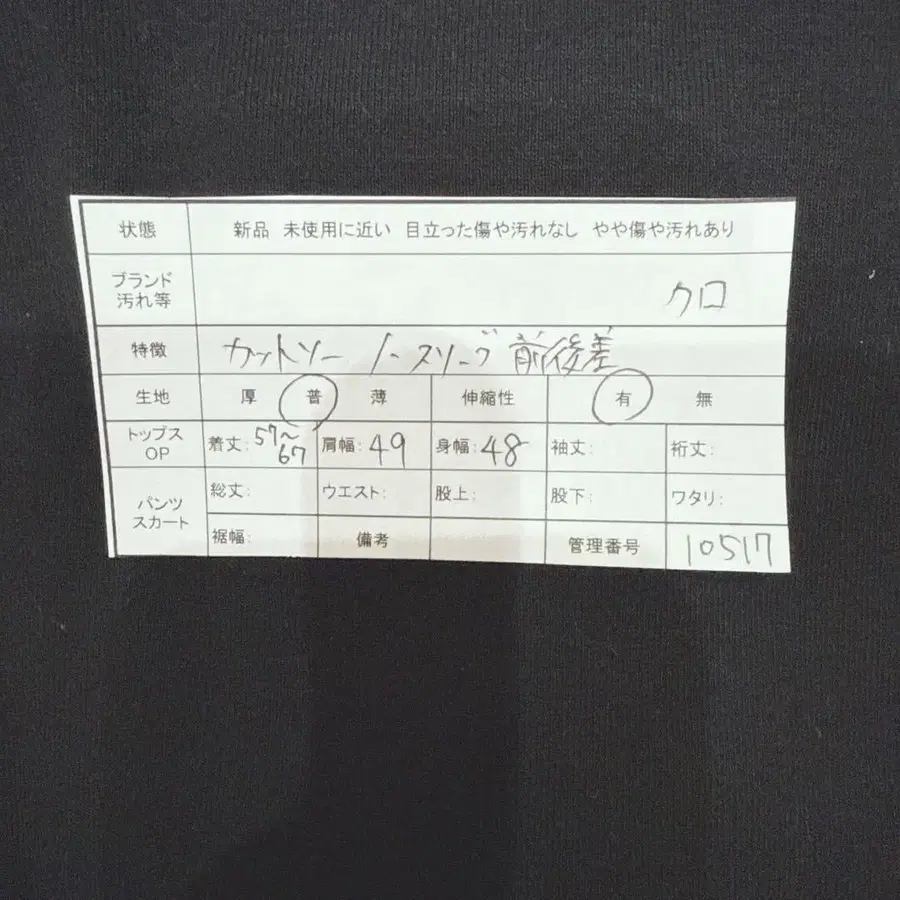 状態 新品 未使用に近い 目立った傷や汚れなし やや傷や汚れあり
ブランド
汚れ等 クロ
特徴 カットソー ノースリーブ 前後差
生地 厚 普 薄 伸縮性 有 無
トップス
OP 着丈: 57~67 肩幅: 49 身幅: 48 袖丈: 裄丈:
パンツ
スカート 総丈: ウエスト: 股上: 股下: ワタリ:
裾幅: 備考 管理番号 10517